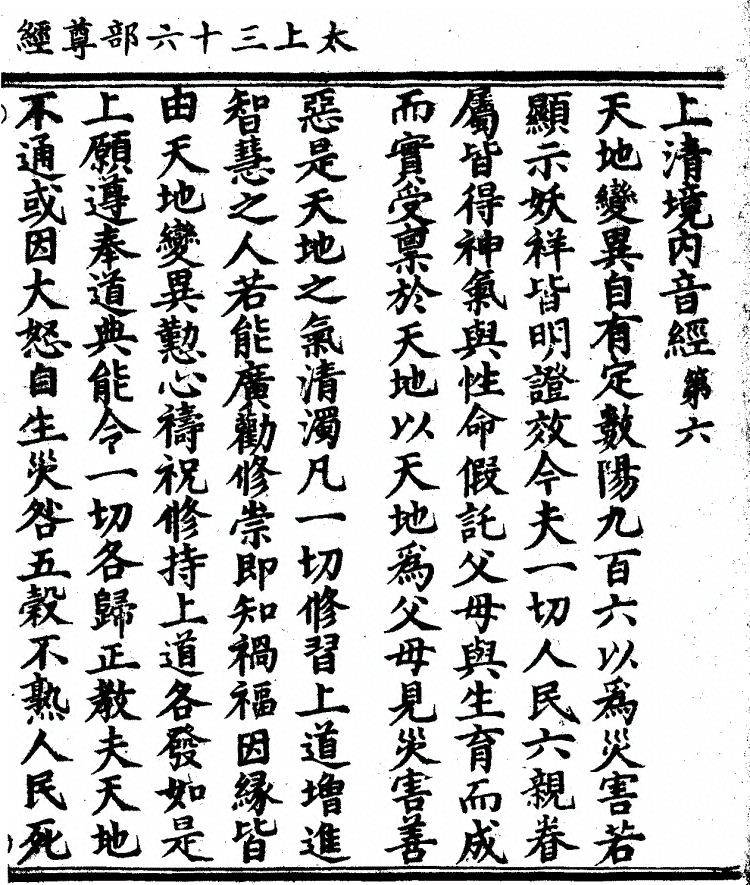 太上三十六部尊經
上清境内音經第六
天地變異自有定數陽九百六以爲災害若
顯示妖祥皆明證效今夫一切人民六親眷
屬皆得神氣與性命假託父母與生育而成
而實受稟於天地以天地爲父母見災害善
惡是天地之氣清濁凡一切修習上道增進
智慧之人若能廣勸修崇即知禍福因緣皆
由天地變異懃心禱祝修持上道各發如是
上願遵奉道典能令一切各歸正教夫天地
不通或因大怒自生災咎五穀不熟人民死